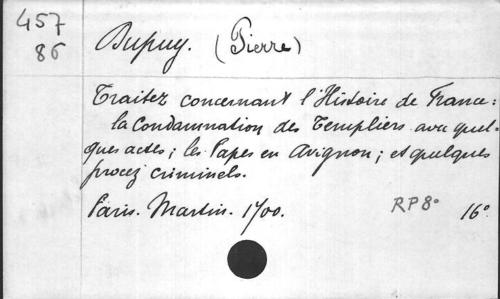 457
86
Dupuy. (Pierre)
Traitez concernant l'Histoire de France:
la Condamnation des Templiers avec quel-
ques actes; les Papes en Avignon; et quelques
procez criminels.
Paris. Martin. 1700.
RP 8° 16°